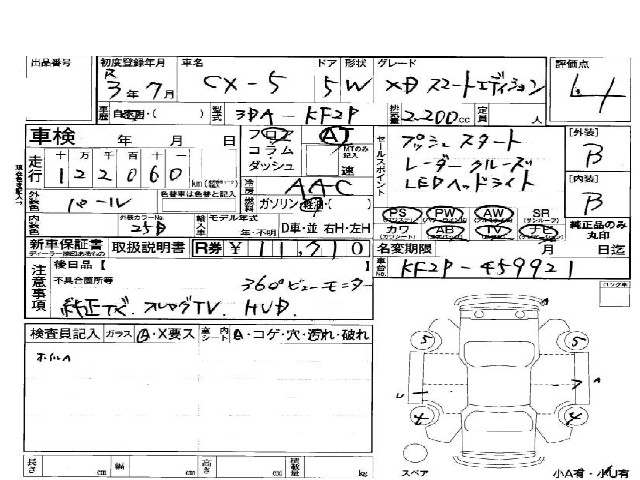 出品番号 初度登録年月 車名 ドア 形状 グレード 評価点
R3年7月 CX-5 5 W XD スマートエディション 4
車歴 自家用・( ) 型式 3DA-KF2P 排気量 2.200cc 定員 人
車検 年 月 日 フロア コラム・ダッシュ AT MTのみ記入 速
セールスポイント プッシュスタート [外装] B
走行 十万千百十一 122060 km
レーダークルーズ
冷房 AAC LEDヘッドライト [内装] B
外装色 パール 色替車は色替と記入 燃料 ガソリン・軽油・( )
PS PW AW SR
内装色 外装カラーNo. 25D 輸入車 モデル年式 年・不明 D車・並 右H・左H
カワ AB TV ナビ 純正品のみ丸印
新車保証書 取扱説明書 R券 ¥11,710 名変期限 月 日迄
注意事項 後日品【 】 車台No. KF2P-459921
不具合箇所等 360°ビューモニター
純正ナビ.フルセグTV. HUD
検査員記入 ガラス A・X要ス 室内 シート A・コゲ・穴・汚れ・破れ
ホイルA
ロング車
A
5 5
U 7 A
4 4
スペア 小A有・小U有
長さ cm 幅 cm 高さ cm 積載量 kg